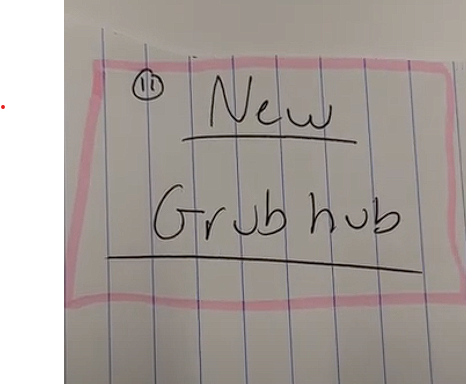 11
New
Grub hub